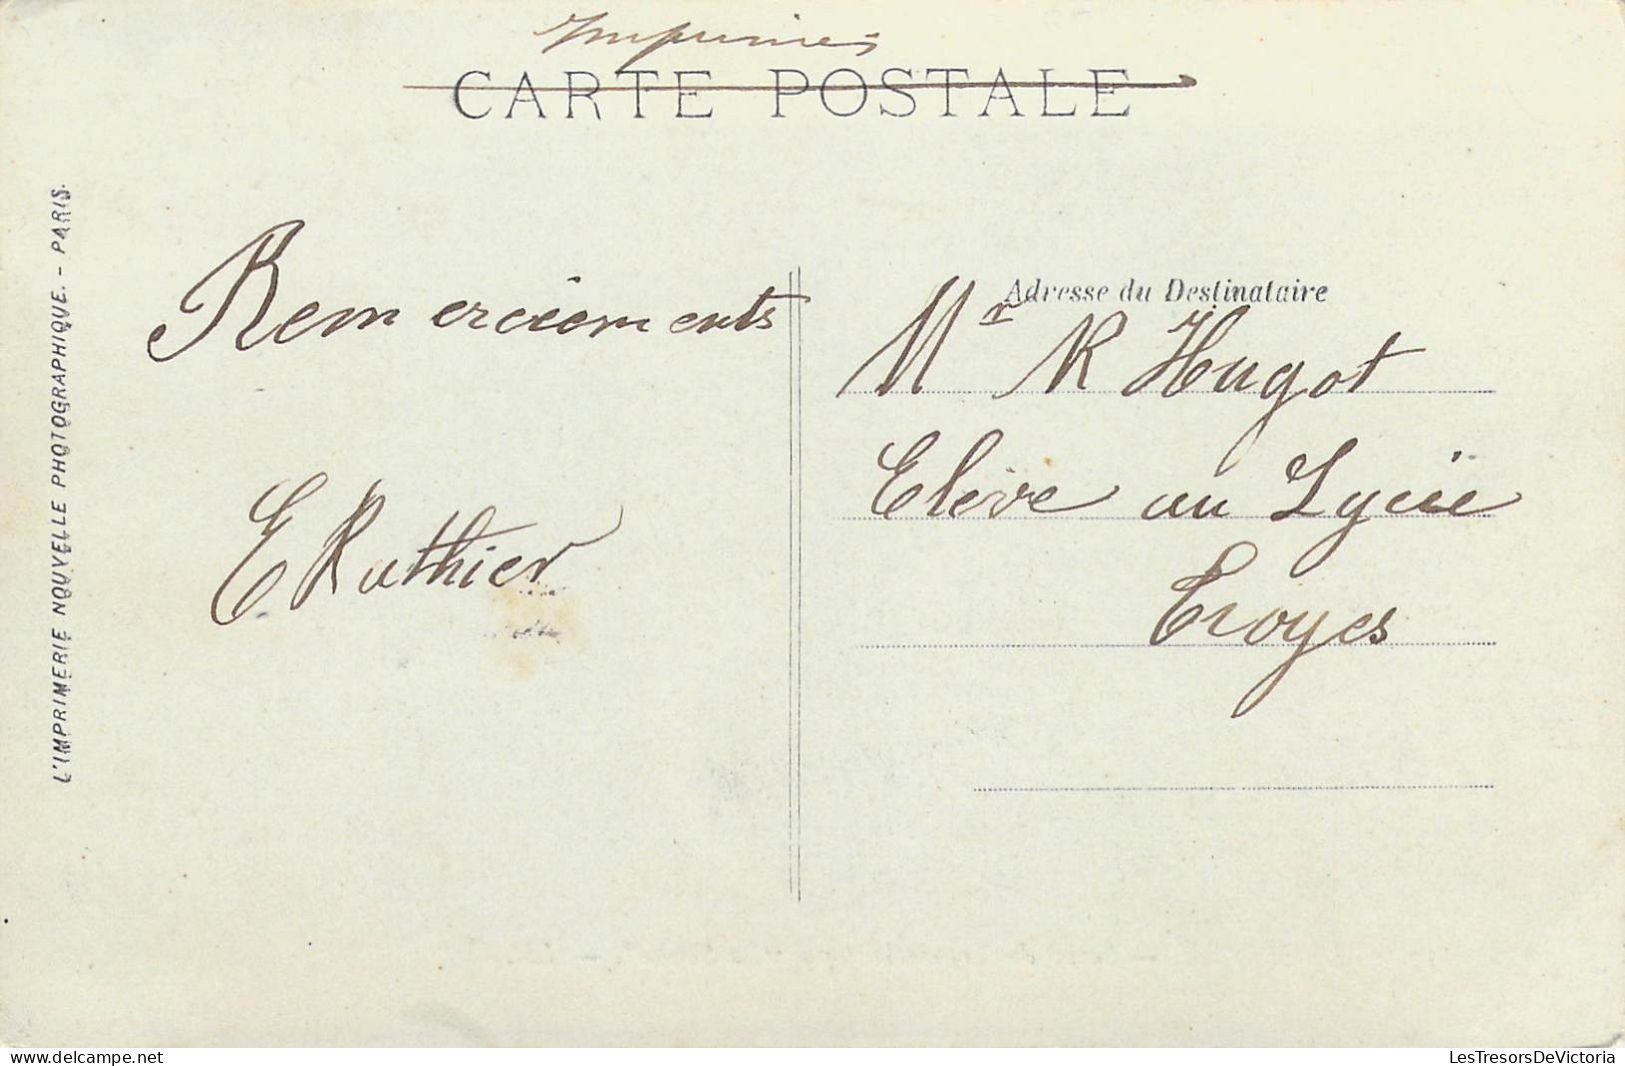 Imprimés
CARTE POSTALE
L'IMPRIMERIE NOUVELLE PHOTOGRAPHIQUE. - PARIS.
Remerciements
E Ruthier
Adresse du Destinataire
Mr R Hugot
Elève au Lycée
Troyes
delcampe.net
LesTresorsDeVictoria